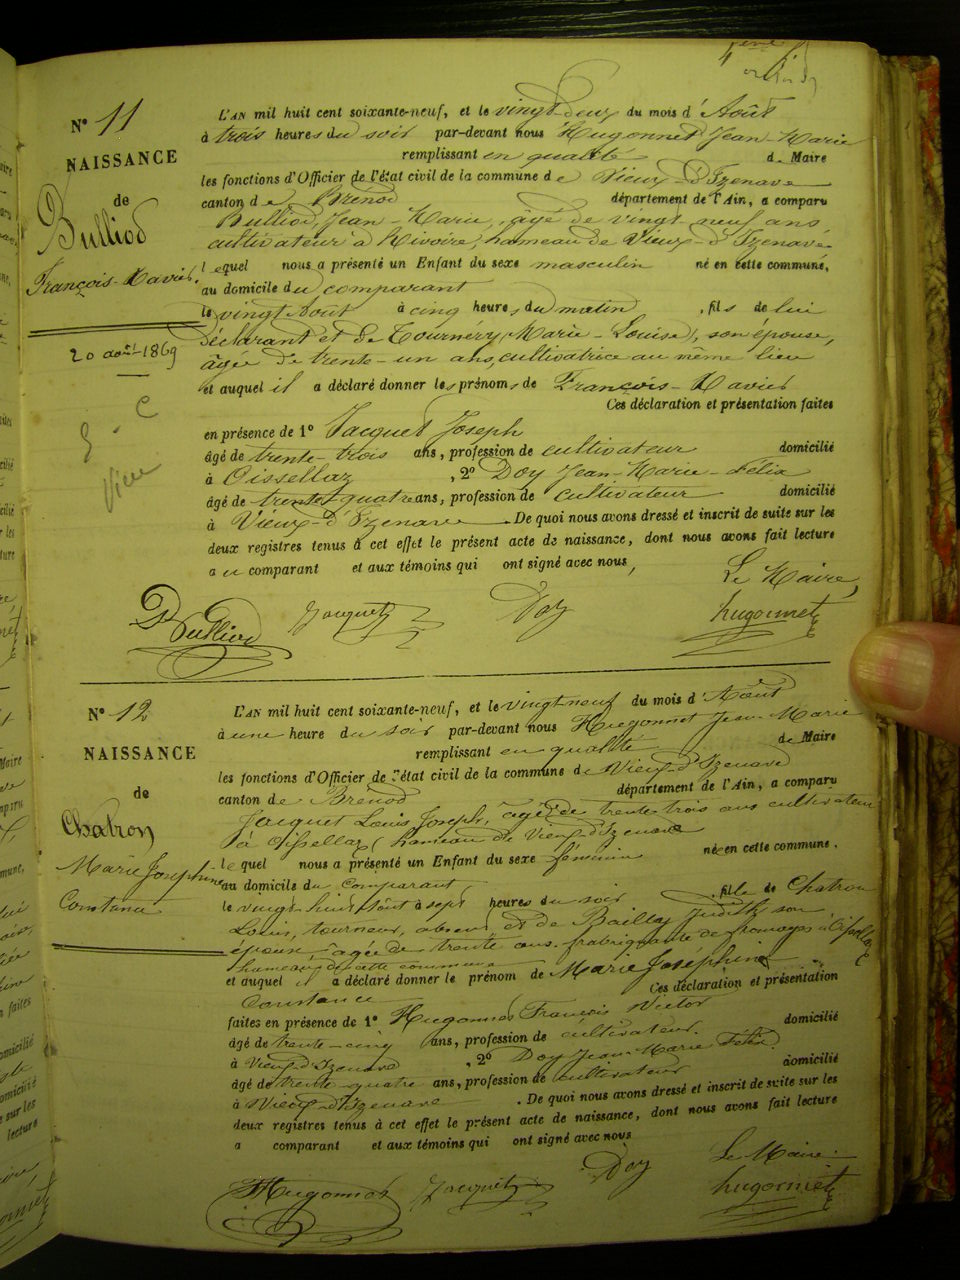 4eme
N° 11
NAISSANCE
de
Bulliod
François-Xavier.
20 août 1869
L'AN mil huit cent soixante-neuf, et le vingt-deux du mois d'Août
à trois heures du soir par-devant nous Hugonnet Jean-Marie
remplissant en qualité de Maire
les fonctions d'Officier de l'état civil de la commune de Vieux-d'Izenave
canton de Brénod département de l'Ain, a comparu
Bulliod Jean-Marie, âgé de vingt-neuf ans
cultivateur à Rivoire, hameau de Vieux-d'Izenave
lequel nous a présenté un Enfant du sexe masculin né en cette commune,
au domicile du comparant
le vingt Août à cinq heures du matin, fils de lui
déclarant et de Tournéry Marie-Louise, son épouse,
âgée de trente-un ans, cultivatrice au même lieu
et auquel il a déclaré donner les prénoms de François-Xavier
Ces déclaration et présentation faites
en présence de 1° Jacquet Joseph
âgé de trente-trois ans, profession de cultivateur domicilié
à Oissellaz, 2° Doy Jean-Marie-Félix
âgé de trente-quatre ans, profession de cultivateur domicilié
à Vieux-d'Izenave. De quoi nous avons dressé et inscrit de suite sur les
deux registres tenus à cet effet le présent acte de naissance, dont nous avons fait lecture
au comparant et aux témoins qui ont signé avec nous,
Le Maire,
Bulliod Jacquet Doy hugonnet
N° 12
NAISSANCE
de
Chatron
Marie Joséphine
Constance
L'AN mil huit cent soixante-neuf, et le vingt neuf du mois d'Août
à une heure du soir par-devant nous Hugonnet Jean-Marie
remplissant en qualité de Maire
les fonctions d'Officier de l'état civil de la commune de Vieux-d'Izenave
canton de Brénod département de l'Ain, a comparu
Jacquet Louis Joseph, âgé de trente trois ans cultivateur
à Oissellaz, hameau de Vieux-d'Izenave
lequel nous a présenté un Enfant du sexe féminin né en cette commune.
au domicile du comparant,
le vingt-huit Août à sept heures du soir, fille de Chatron
Louis, tourneur, absent, et de Bailly Judith, son
épouse, âgée de trente ans. fabriquante de fromages à Oissellaz
hameau de cette commune
et auquel il a déclaré donner le prénom de Marie Joséphine
Constance Ces déclaration et présentation
faites en présence de 1° Hugonnet François Victor
âgé de trente-cinq ans, profession de cultivateur. domicilié
à Vieux-d'Izenave, 2° Doy Jean-Marie Félix
âgé de trente-quatre ans, profession de cultivateur domicilié
à Vieux-d'Izenave. De quoi nous avons dressé et inscrit de suite sur les
deux registres tenus à cet effet le présent acte de naissance, dont nous avons fait lecture
a comparant et aux témoins qui ont signé avec nous
Le Maire.
Hugonnet Jacquet Doy hugonnet